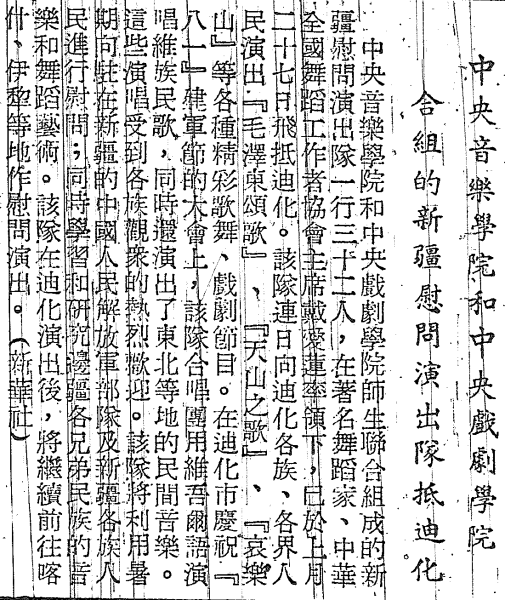 中央音樂學院和中央戲劇學院
合組的新疆慰問演出隊抵迪化
中央音樂學院和中央戲劇學院師生聯合組成的新
疆慰問演出隊一行三十二人，在著名舞蹈家、中華
全國舞蹈工作者協會主席戴愛蓮率領下，已於上月
二十七日飛抵迪化。該隊連日向迪化各族、各界人
民演出『毛澤東頌歌』、『天山之歌』、『哀樂
山』等各種精彩歌舞、戲劇節目。在迪化市慶祝『
八一』建軍節的大會上，該隊合唱團用維吾爾語演
唱維族民歌，同時還演出了東北等地的民間音樂。
這些演唱受到各族觀衆的熱烈歡迎。該隊將利用暑
期向駐在新疆的中國人民解放軍部隊及新疆各族人
民進行慰問；同時學習和研究邊疆各兄弟民族的音
樂和舞蹈藝術。該隊在迪化演出後，將繼續前往喀
什、伊犂等地作慰問演出。（新華社）